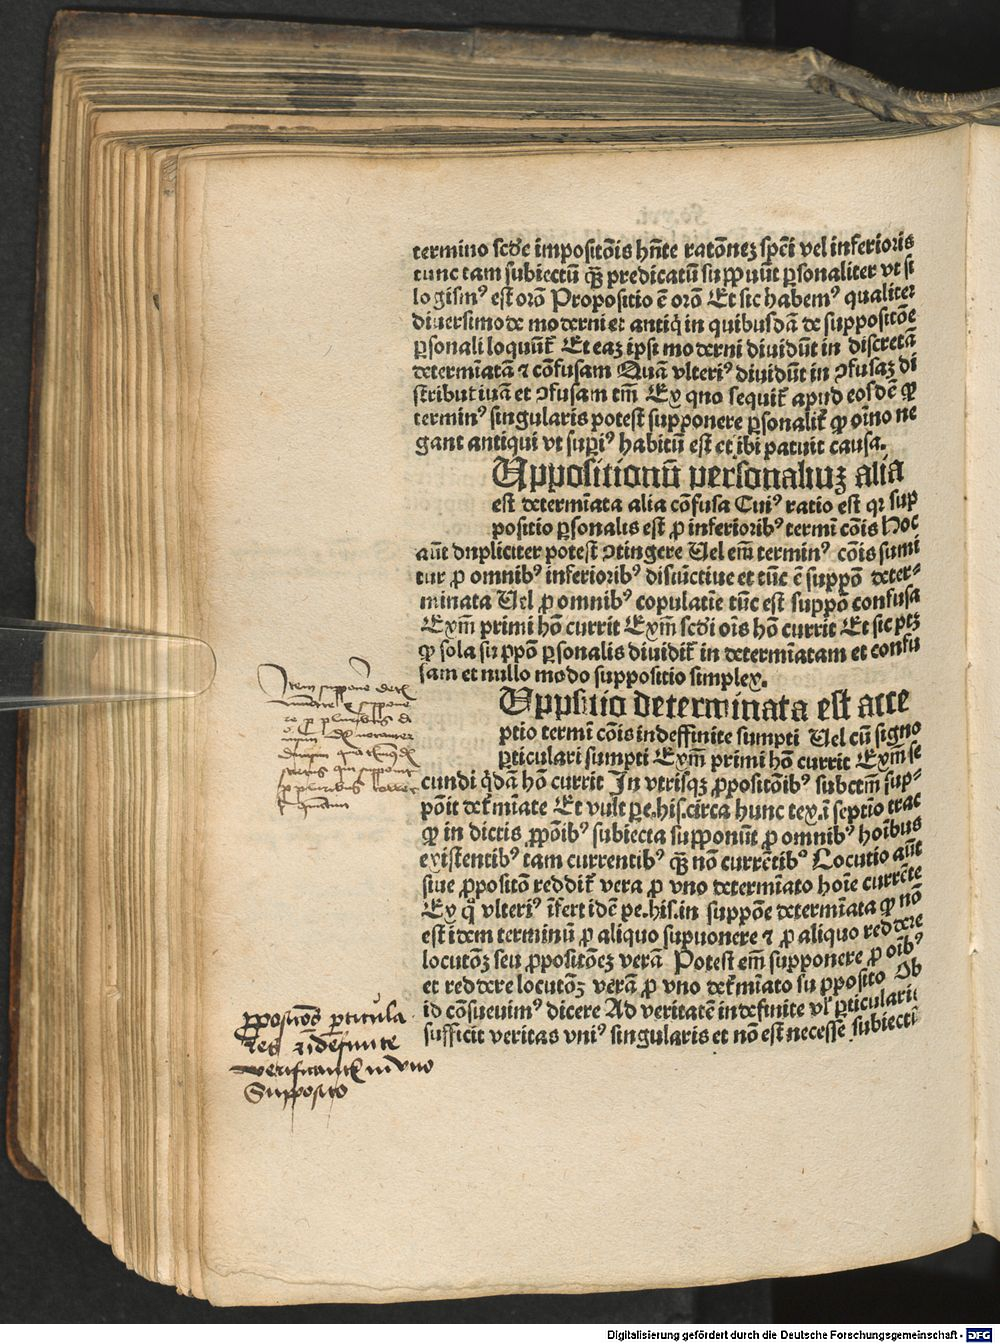 termino scde impositõis hñte ratõnez spẽi vel inferioris
tunc tam subiectũ qꝫ predicatũ suppuũt ꝑsonaliter vt si
logismꝰ est orõ Propositio ẽ orõ Et sic habemꝰ qualiter
diuersimode moderni et antiq̃ in quibusdã de suppositõe
ꝑsonali loquũt᷑ Et eaz ipsi moderni diuidũt in discretã
determĩatã ⁊ cõfusam Quã vlteriꝰ diuidũt in ↄfusaz di
stributiuã et ↄfusam tm̃ Ex quo sequit᷑ apud eosdẽ ꝙ
terminꝰ singularis potest supponere ꝑsonalit᷑ ꝙ oĩno ne
gant antiqui vt supiꝰ habitũ est et ibi patuit causa.
Uppositionũ personaliuz alia
est determĩata alia cõfusa Cuiꝰ ratio est qꝛ sup
positio ꝑsonalis est ꝓ inferioribꝰ termĩ cõis Hoc
aũt dupliciter potest ↄtingere Uel em̃ terminꝰ cõis sumi
tur ꝓ omnibꝰ inferioribꝰ disiũctiue et tũc ẽ suppõ deter⸗
minata Uel ꝓ omnibꝰ copulatĩe tũc est suppõ confusa
Exm̃ primi hõ currit Exm̃ scdi oĩs hõ currit Et sic ptꝫ
ꝙ sola suppõ ꝑsonalis diuidit᷑ in determĩatam et confu
sam et nullo modo suppositio simplex.
Uppsitio determinata est acce
ptio termĩ cõis indeffinite sumpti Uel cũ signo
ꝑticulari sumpti Exm̃ primi hõ currit Exm̃ se
cundi q̃dã hõ currit In vtrisqꝫ ꝓpositõibꝰ subctm̃ sup⸗
põit det᷑mĩate Et vult pe.his.circa hunc tex.ĩ septio trac
ꝙ in dictis ꝓpõibꝰ subiecta supponũt ꝓ omnibꝰ hoĩbus
existentibꝰ tam currentibꝰ qꝫ nõ currẽtibꝰ Locutio aũt
siue ꝓpositõ reddit᷑ vera ꝓ vno determĩato hoĩe currẽte
Ex q̊ vlteriꝰ ĩfert idẽ pe.his.in suppõe determĩata ꝙ nõ
est ĩdem terminũ ꝓ aliquo supuonere ⁊ ꝓ aliquo reddere
locutõꝫ seu ꝓpositõeꝫ verã Potest em̃ supponere ꝓ oĩbꝰ
et reddere locutõꝫ verã ꝓ vno det᷑mĩato supposito Ob
id cõsueuimꝰ dicere Ad veritatẽ indefinite vl᷑ ꝑticularis
sufficit veritas vniꝰ singularis et nõ est necesse subiecti
Item supponere
ꝓposicões ꝑticula
res ⁊ ĩdefinite
verificant᷑ in vno
Supposito
Digitalisierung gefördert durch die Deutsche Forschungsgemeinschaft - DFG